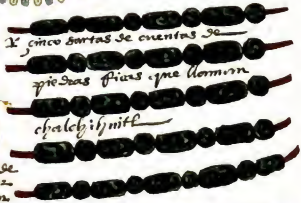 x cinco sartas de cuentas de
piedras ricas que llaman
chalchihuitl
de